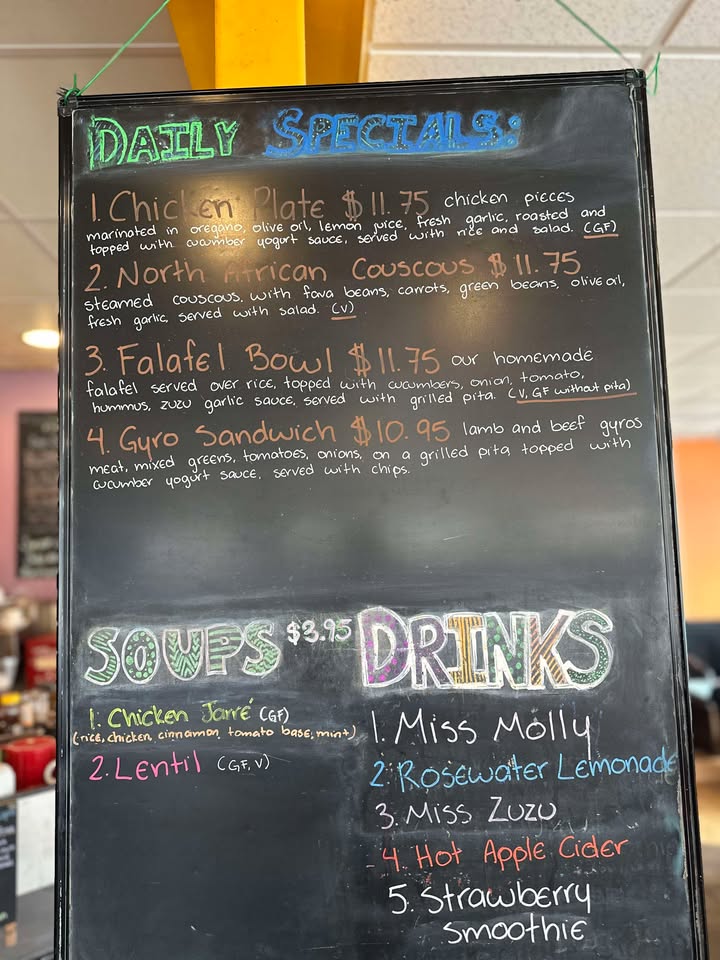 DAILY SPECIALS:
1. Chicken Plate $11.75 chicken pieces
marinated in oregano, olive oil, lemon juice, fresh garlic, roasted and
topped with cucumber yogurt sauce, served with rice and salad. (GF)
2. North African Couscous $11.75
steamed couscous, with fava beans, carrots, green beans, olive oil,
fresh garlic, served with salad. (V)
3. Falafel Bowl $11.75 our homemade
falafel served over rice, topped with cucumbers, onion, tomato,
hummus, zuzu garlic sauce, served with grilled pita. (V, GF without pita)
4. Gyro Sandwich $10.95 lamb and beef gyros
meat, mixed greens, tomatoes, onions, on a grilled pita topped with
cucumber yogurt sauce, served with chips.
SOUPS $3.95
1. Chicken Jarré (GF)
(rice, chicken, cinnamon, tomato base, mint)
2. Lentil (GF, V)
DRINKS
1. Miss Molly
2. Rosewater Lemonade
3. Miss Zuzu
4. Hot Apple Cider
5. Strawberry
smoothie